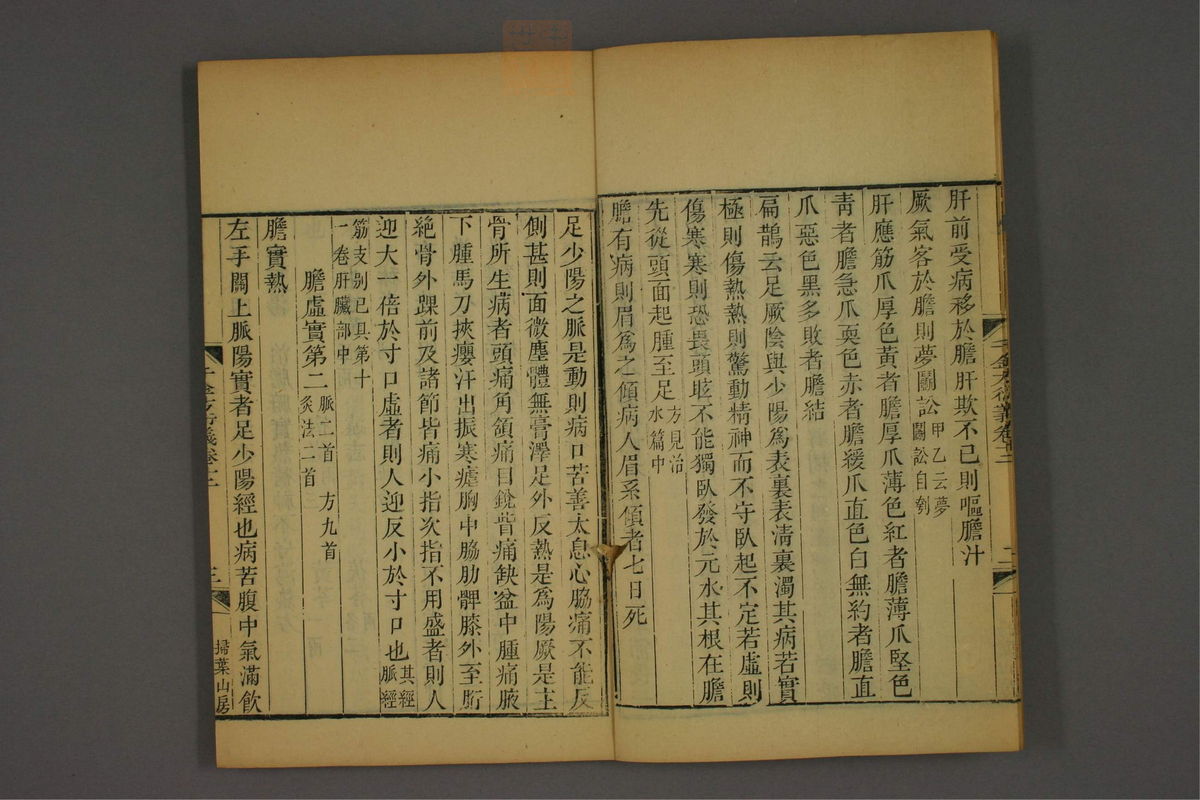 肝前受病移於膽肝欬不已則嘔膽汁
厥氣客於膽則夢鬬訟甲乙云夢鬬訟自刳
肝應筋爪厚色黃者膽厚爪薄色紅者膽薄爪堅色
靑者膽急爪耎色赤者膽緩爪直色白無約者膽直
爪惡色黑多敗者膽結
扁鵲云足厥陰與少陽爲表裏表淸裏濁其病若實
極則傷熱熱則驚動精神而不守臥起不定若虛則
傷寒寒則恐畏頭眩不能獨臥發於元水其根在膽
先從頭面起腫至足方見治水篇中
膽有病則眉爲之傾病人眉系傾者七日死
千金方衍義卷十二
二
足少陽之脈是動則病口苦善太息心脇痛不能反
側甚則面微塵體無膏澤足外反熱是爲陽厥是主
骨所生病者頭痛角頷痛目銳眥痛缺盆中腫痛腋
下腫馬刀挾癭汗出振寒瘧胸中脇肋髀膝外至胻
絕骨外踝前及諸節皆痛小指次指不用盛者則人
迎大一倍於寸口虛者則人迎反小於寸口也其經脈經
筋支別已具第十一卷肝臟部中
膽虛實第二脈二首 方九首灸法二首
膽實熱
左手關上脈陽實者足少陽經也病苦腹中氣滿飲
千金方衍義卷十二
三
掃葉山房